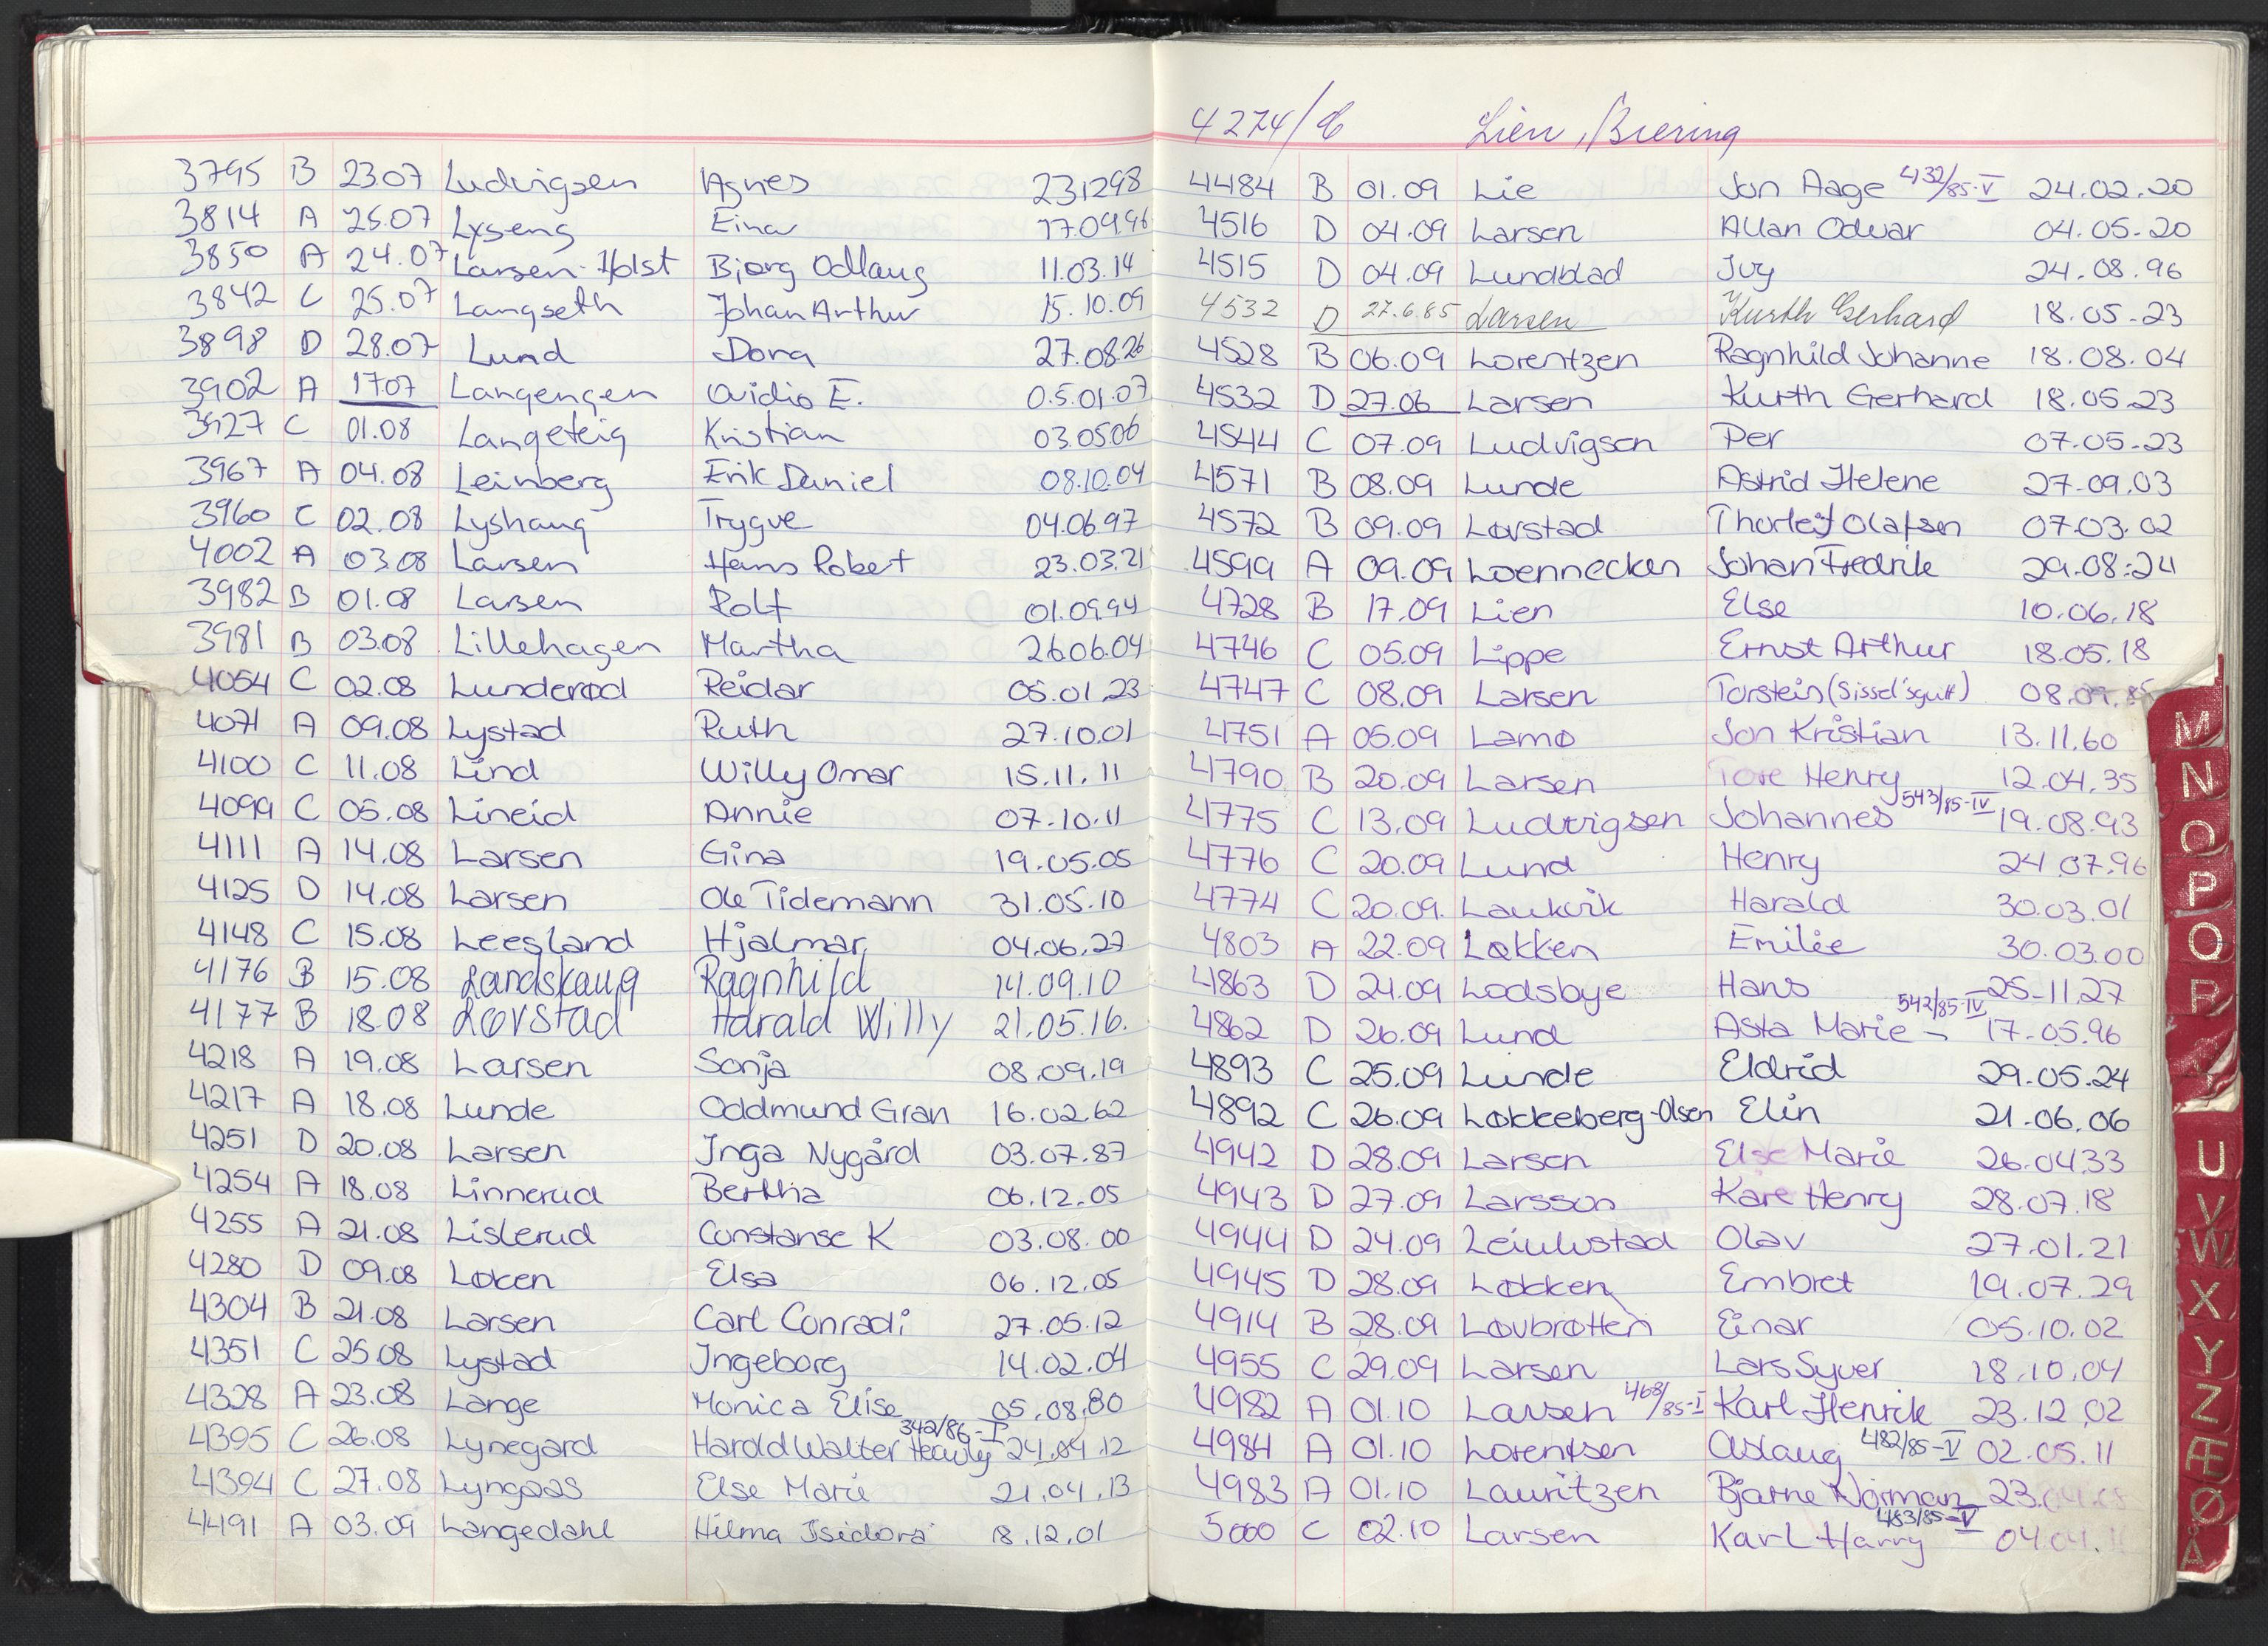 3795 B 23.07 Ludvigsen Agnes 231298
3814 A 25.07 Lyseng Einar 17.09.96
3850 A 24.07 Larsen-Holst Bjørg Odlaug 11.03.14
3842 C 25.07 Langseth Johan Arthur 15.10.09
3898 D 28.07 Lund Dora 27.08.26
3902 A 17.07 Langengen Ovidio E. 05.01.07
3927 C 01.08 Langeteig Kristian 03.05.06
3967 A 04.08 Leinberg Erik Daniel 08.10.04
3960 C 02.08 Lyshaug Trygve 04.06.97
4002 A 03.08 Larsen Hans Robert 23.03.21
3982 B 01.08 Larsen Rolf 01.09.94
3981 B 03.08 Lillehagen Martha 26.06.04
4054 C 02.08 Lunderød Reidar 05.01.23
4071 A 09.08 Lystad Ruth 27.10.01
4100 C 11.08 Lind Willy Omar 15.11.11
4099 C 05.08 Lineid Annie 07.10.11
4111 A 14.08 Larsen Gina 19.05.05
4125 D 14.08 Larsen Ole Tidemann 31.05.10
4148 C 15.08 Leesland Hjalmar 04.06.27
4176 B 15.08 Landskaug Ragnhild 14.09.10
4177 B 18.08 Lørstad Harald Willy 21.05.16.
4218 A 19.08 Larsen Sonja 08.09.19
4217 A 18.08 Lunde Oddmund Gran 16.02.62
4251 D 20.08 Larsen Inga Nygård 03.07.87
4254 A 18.08 Linnerud Bertha 06.12.05
4255 A 21.08 Lislerud Constanse K 03.08.00
4280 D 09.08 Løken Elsa 06.12.05
4304 B 21.08 Larsen Carl Conradi 27.05.12
4351 C 25.08 Lystad Ingeborg 14.02.04
4328 A 23.08 Lange Monica Elise 05.08.80
4395 C 26.08 Lynegard Harold Walter 342/86-I 24.04.12
4394 C 27.08 Lyngaas Else Marie 21.04.13
4491 A 03.09 Langedahl Hilma Isidora 18.12.01
4274/C Lien, Biering
4484 B 01.09 Lie Jon Aage 432/85-V 24.02.20
4516 D 04.09 Larsen Allan Odvar 04.05.20
4515 D 04.09 Lundblad Ivy 24.08.96
4532 D 27.6.85 Larsen Kurth Gerhard 18.05.23
4528 B 06.09 Lorentzen Ragnhild Johanne 18.08.04
4532 D 27.06 Larsen Kurth Gerhard 18.05.23
4544 C 07.09 Ludvigsen Per 07.05.23
4571 B 08.09 Lunde Astrid Helene 27.09.03
4572 B 09.09 Lørstad Thorleif Olafsen 07.03.02
4599 A 09.09 Loennecken Johan Fredrik 29.08.24
4728 B 17.09 Lien Else 10.06.18
4746 C 05.09 Lippe Ernst Arthur 18.05.18
4747 C 08.09 Larsen Torstein (Sissel's gutt) 08.09.85
4751 A 05.09 Lamo Jon Kristian 13.11.60
4790 B 20.09 Larsen Tore Henry 12.04.35
4775 C 13.09 Ludvigsen Johannes 543/85-IV 19.08.93
4776 C 20.09 Lund Henry 24.07.96
4774 C 20.09. Laukvik Harald 30.03.01
4803 A 22.09 Løkken Emilie 30.03.00
4863 D 24.09 Lodsbye Hans 25.11.27
4862 D 26.09 Lund Asta Marie 542/85-IV 17.05.96
4893 C 25.09 Lunde Eldrid 29.05.24
4892 C 26.09 Løkkeberg-Olsen Elin 21.06.06
4942 D 28.09 Larsen Else Marie 26.04.33
4943 D 27.09 Larsson Kåre Henry 28.07.18
4944 D 24.09 Olav 27.01.21
4945 D 28.09 Løkken Embret 19.07.29
4914 B 28.09 Løvbrøtten Einar 05.10.02
4955 C 29.09 Larsen Lars Syver 18.10.04
4982 A 01.10 Larsen 468/85-I Karl Henrik 23.12.02
4984 A 01.10 Lorentsen Aslaug 482/85-V 02.05.11
4983 A 01.10 Lauritzen Bjarne Norman 23.04.08
5000 C 02.10 Larsen Karl Harry 483/85-V 04.04.
M
N
O
P
Q
R
U
V
W
X
Y
Z
Æ
Ø
Å